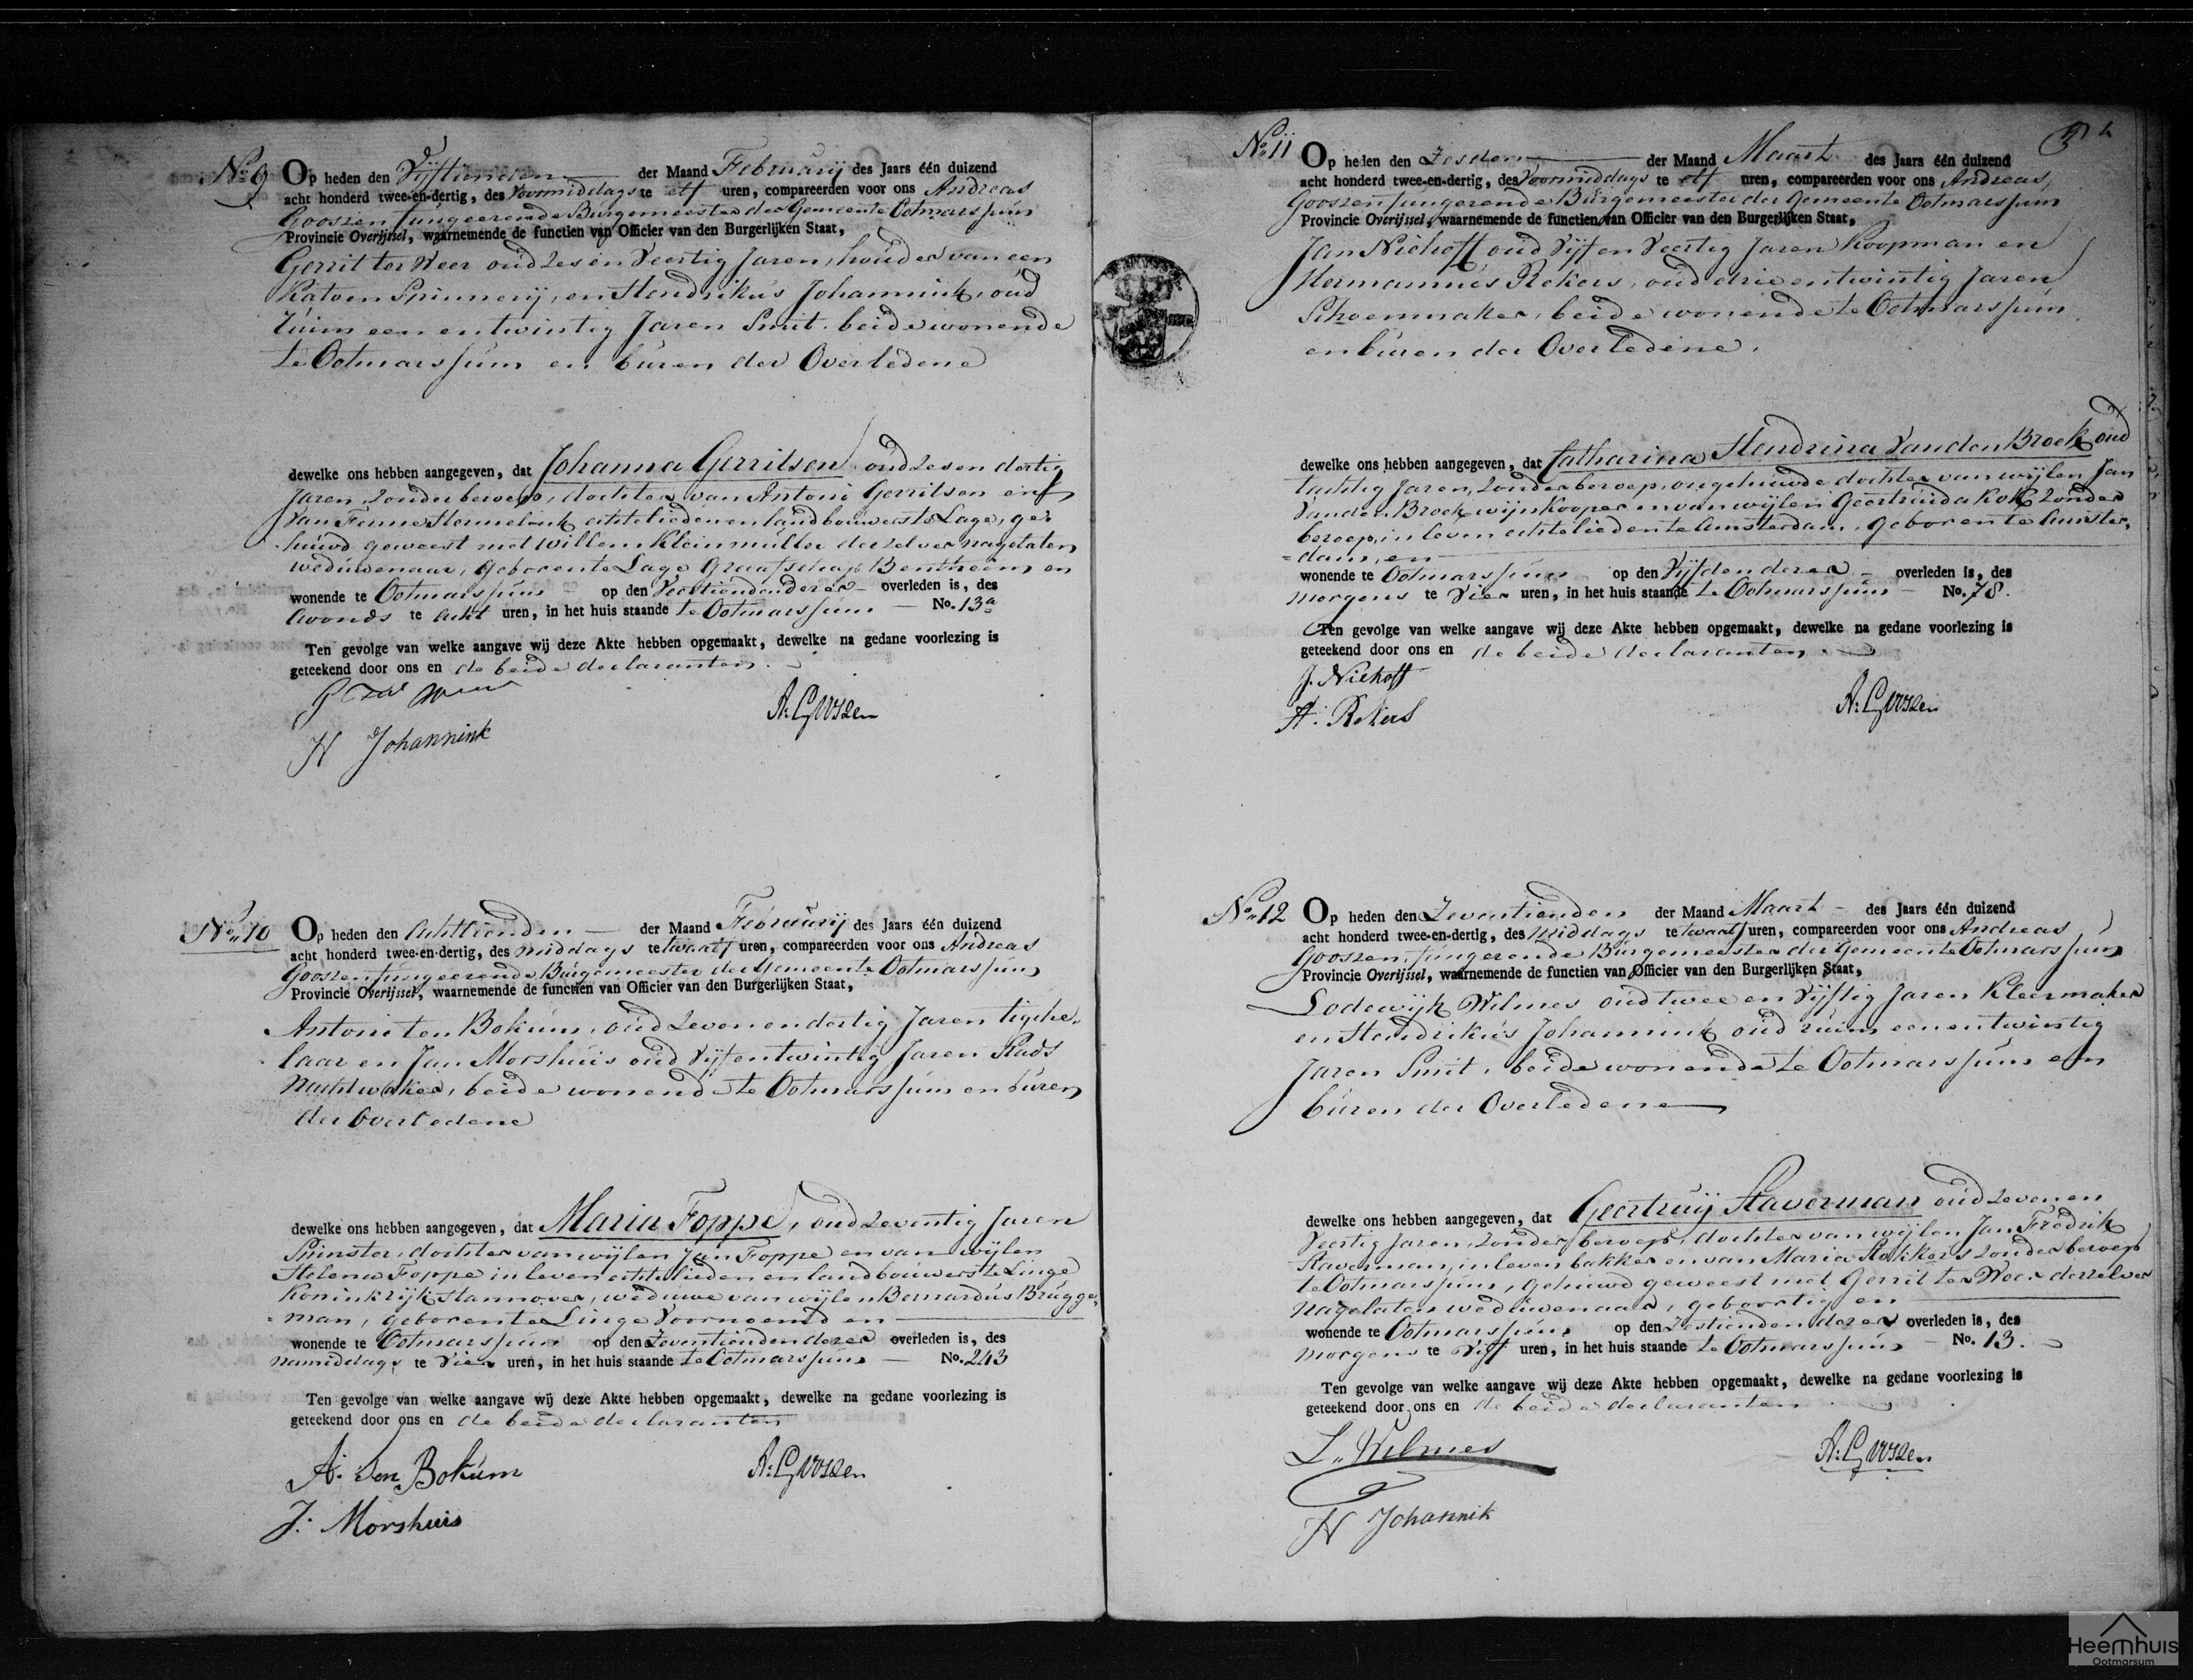 No. 9 Op heden den Vijftienden der Maand Februarij des Jaars één duizend
acht honderd twee-en-dertig, des Voormiddags te elf uren, compareerden voor ons Andreas
Goossen fungeerende Burgemeester der Gemeente Ootmarssum
Provincie Overijssel, waarnemende de functien van Officier van den Burgerlijken Staat,
Gerrit ter Weer oud Zes en Veertig Jaren, houder van een
Katoen Spinnerij, en Hendrikus Johannink, oud
ruim een en twintig Jaren Smit. beide wonende
te Ootmarssum en buren der Overledene
dewelke ons hebben aangegeven, dat Johanna Gerritsen oud Zes en dertig
Jaren, Zonder beroep, dochter van Antoni Gerritsen en
van Fenne Hermelink echtelieden en landbouwers te Lage, ge-
huwd geweest met Willem Kleinmuller deszelver nagelaten
weduwenaar, geboren te Lage Graafschap Bentheim en
wonende te Ootmarssum op den Veertienden dezer overleden is, des
Avonds te acht uren, in het huis staande te Ootmarssum No. 13a
Ten gevolge van welke aangave wij deze Akte hebben opgemaakt, dewelke na gedane voorlezing is
geteekend door ons en de beide declaranten.
G ter Weer
A: Goossen
H Johannink
No. 10 Op heden den Achttienden der Maand Februarij des Jaars één duizend
acht honderd twee-en-dertig, des middags te twaalf uren, compareerden voor ons Andreas
Goossen fungeerende Burgemeester der Gemeente Ootmarssum
Provincie Overijssel, waarnemende de functien van Officier van den Burgerlijken Staat,
Antoni ten Bokum, oud Zeven en dertig Jaren tigche-
laar en Jan Morshuis oud Vijf en twintig Jaren Stads
Nachtwaker, beide wonende te Ootmarssum en buren
der Overledene
dewelke ons hebben aangegeven, dat Maria Foppe, oud Zeventig Jaren
Spinster, dochter van wijlen Jan Foppe en van wijlen
Helena Foppe in leven echtelieden en landbouwers te Linge
Koninkrijk Hannover, weduwe van wijlen Bernardus Brugge-
= man, geboren te Linge Voornoemd en
wonende te Ootmarssum op den Zeventienden dezer overleden is, des
namiddags te Vier uren, in het huis staande te Ootmarssum No. 243
Ten gevolge van welke aangave wij deze Akte hebben opgemaakt, dewelke na gedane voorlezing is
geteekend door ons en de beide declaranten
A. ten Bokum
A: Goossen
J. Morshuis
No. 11 Op heden den Zesden der Maand Maart des Jaars één duizend
acht honderd twee-en-dertig, des Voormiddags te elf uren, compareerden voor ons Andreas
Goossen fungerende Burgemeester der Gemeente Ootmarssum
Provincie Overijssel, waarnemende de functien van Officier van den Burgerlijken Staat,
Jan Niehoff oud Vijf en Veertig Jaren Koopman en
Hermannus Rekers, oud drie en twintig Jaren
Schoenmaker, beide wonende te Ootmarssum
en buren der Overledene.
dewelke ons hebben aangegeven, dat Catharina Hendrina Van den Broek oud
tachtig Jaren, Zonder beroep, ongehuwde dochter van wijlen Jan
Van den Broek wijnkooper en van wijlen Geertruida Kok Zonder
beroep, in leven echtelieden te Amsterdam, geboren te Amster-
= dam, en
wonende te Ootmarssum op den Vijfden dezer overleden is, des
morgens te Vier uren, in het huis staande te Ootmarssum No. 78.
Ten gevolge van welke aangave wij deze Akte hebben opgemaakt, dewelke na gedane voorlezing is
geteekend door ons en de beide declaranten.
J. Niehoff
A: Goossen
H. Rekers
No. 12 Op heden den Zeventienden der Maand Maart des Jaars één duizend
acht honderd twee-en-dertig, des Middags te twaalf uren, compareerden voor ons Andreas
Goossen, fungerende Burgemeester der Gemeente Ootmarssum
Provincie Overijssel, waarnemende de functien van Officier van den Burgerlijken Staat,
Lodewijk Wilmes oud twee en Vijftig Jaren Kleermaker
en Hendrikus Johannink oud ruim een en twintig
Jaren Smit, beide wonende te Ootmarssum en
buren der Overledene
dewelke ons hebben aangegeven, dat Geertruij Staverman oud Zeven en
Veertig Jaren, Zonder beroep, dochter van wijlen Jan Fredrik
Staverman, in leven bakker en van Maria Zonder beroep
te Ootmarssum, gehuwd geweest met Gerrit ter Weer derzelver
nagelaten weduwenaar, geboortig en
wonende te Ootmarssum op den Zestienden dezer overleden is, des
morgens te Vijf uren, in het huis staande te Ootmarssum No. 13.
Ten gevolge van welke aangave wij deze Akte hebben opgemaakt, dewelke na gedane voorlezing is
geteekend door ons en de beide declaranten
L. Wilmes
A: Goossen
H Johannik
Heemhuis
Ootmarsum